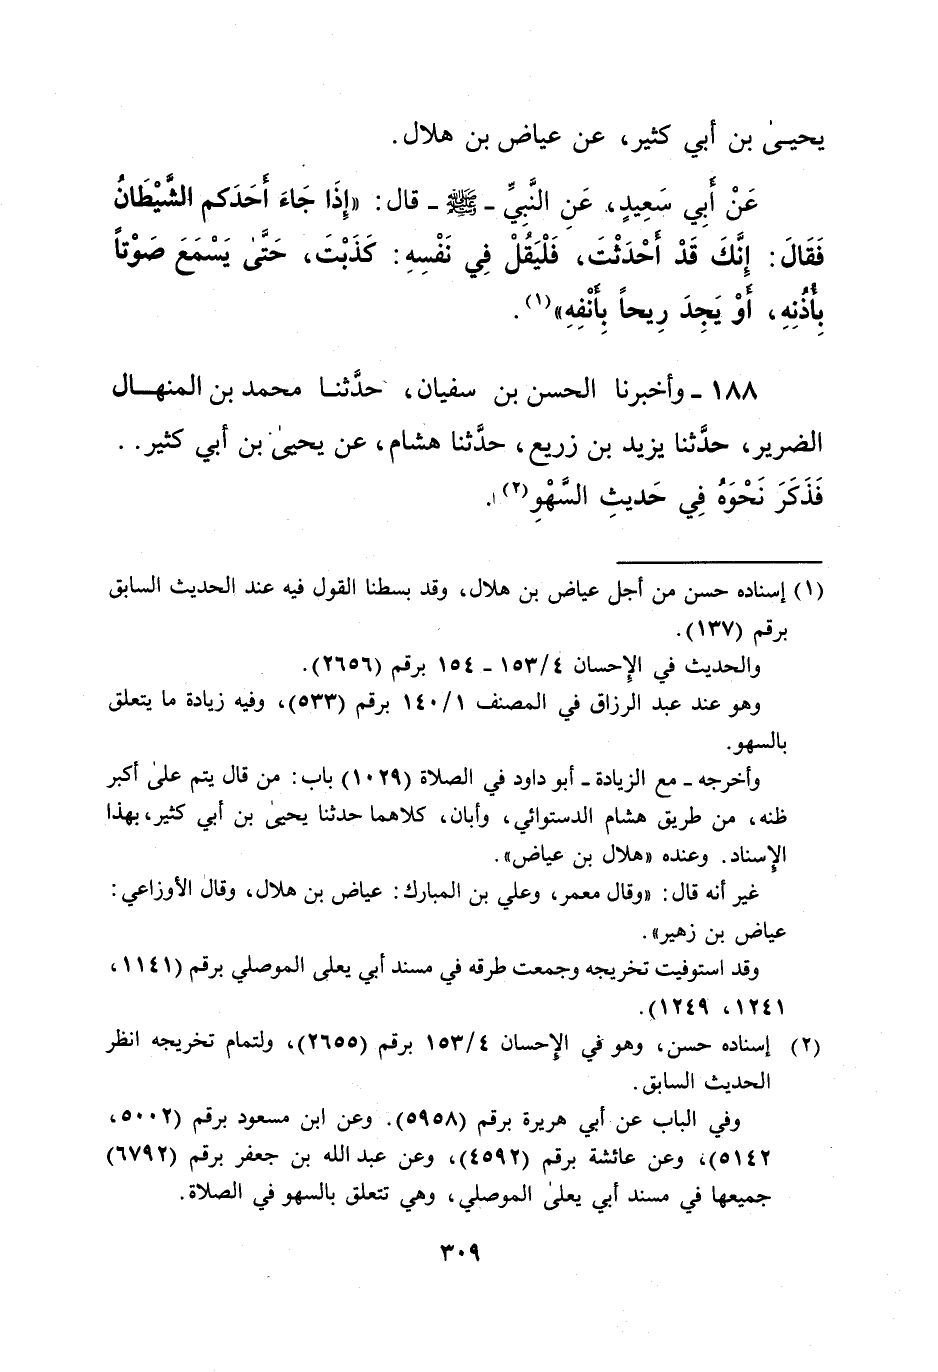 يحيىٰ بن أبي كثير، عن عياض بن هلال.
عَنْ أَبِي سَعِيدٍ، عَنِ النَّبِيِّ ـ ﷺ ـ قال: «إِذَا جَاءَ أَحَدَكم الشَّيْطَانُ
فَقَالَ: إِنَّكَ قَدْ أَحْدَثْتَ، فَلْيَقُلْ فِي نَفْسِهِ: كَذَبْتَ، حَتَّىٰ يَسْمَعَ صَوْتاً
بِأُذُنِهِ، أَوْ يَجِدَ رِيحاً بِأَنْفِهِ»(١).
١٨٨ ـ وأخبرنا الحسن بن سفيان، حدَّثنا محمد بن المنهال
الضرير، حدَّثنا يزيد بن زريع، حدَّثنا هشام، عن يحيىٰ بن أبي كثير..
فَذَكَرَ نَحْوَهُ فِي حَديثِ السَّهْوِ(٢).
(١) إسناده حسن من أجل عياض بن هلال، وقد بسطنا القول فيه عند الحديث السابق
برقم (١٣٧).
والحديث في الإحسان ٤/١٥٣ ـ ١٥٤ برقم (٢٦٥٦).
وهو عند عبد الرزاق في المصنف ١/١٤٠ برقم (٥٣٣)، وفيه زيادة ما يتعلق
بالسهو.
وأخرجه ـ مع الزيادة ـ أبو داود في الصلاة (١٠٢٩) باب: من قال يتم علىٰ أكبر
ظنه، من طريق هشام الدستوائي، وأبان، كلاهما حدثنا يحيىٰ بن أبي كثير، بهذا
الإسناد. وعنده «هلال بن عياض».
غير أنه قال: «وقال معمر، وعلي بن المبارك: عياض بن هلال، وقال الأوزاعي:
عياض بن زهير».
وقد استوفيت تخريجه وجمعت طرقه في مسند أبي يعلى الموصلي برقم (١١٤١،
١٢٤١، ١٢٤٩).
(٢) إسناده حسن، وهو في الإحسان ٤/١٥٣ برقم (٢٦٥٥)، ولتمام تخريجه انظر
الحديث السابق.
وفي الباب عن أبي هريرة برقم (٥٩٥٨). وعن ابن مسعود برقم (٥٠٠٢،
٥١٤٢)، وعن عائشة برقم (٤٥٩٢)، وعن عبد الله بن جعفر برقم (٦٧٩٢)
جميعها في مسند أبي يعلىٰ الموصلي، وهي تتعلق بالسهو في الصلاة.
٣٠٩